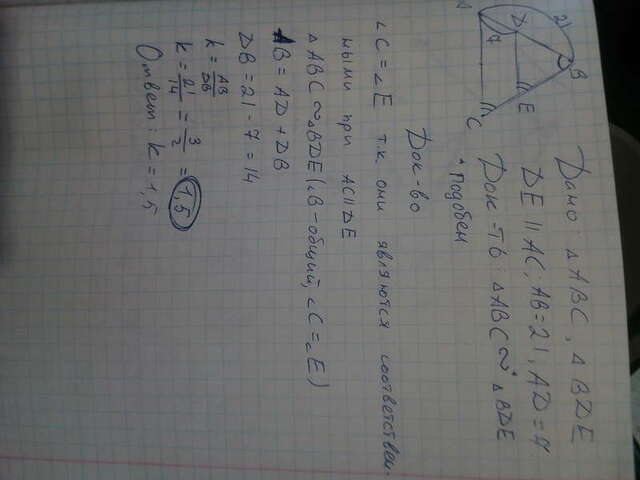 A
D
7
21
B
E
C
Дано: △ABC, △BDE
DE || AC; AB=21, AD=7
Док-ть: △ABC ∾* △BDE
* подобен
Док-во
∠C=∠E т.к. они являются соответствен-
ными при AC||DE
△ABC ∾ △BDE (∠B-общий, ∠C=∠E)
AB = AD + DB
DB = 21 - 7 = 14
k = AB/DB
k = 21/14 = 3/2 = 1,5
Ответ: k = 1,5